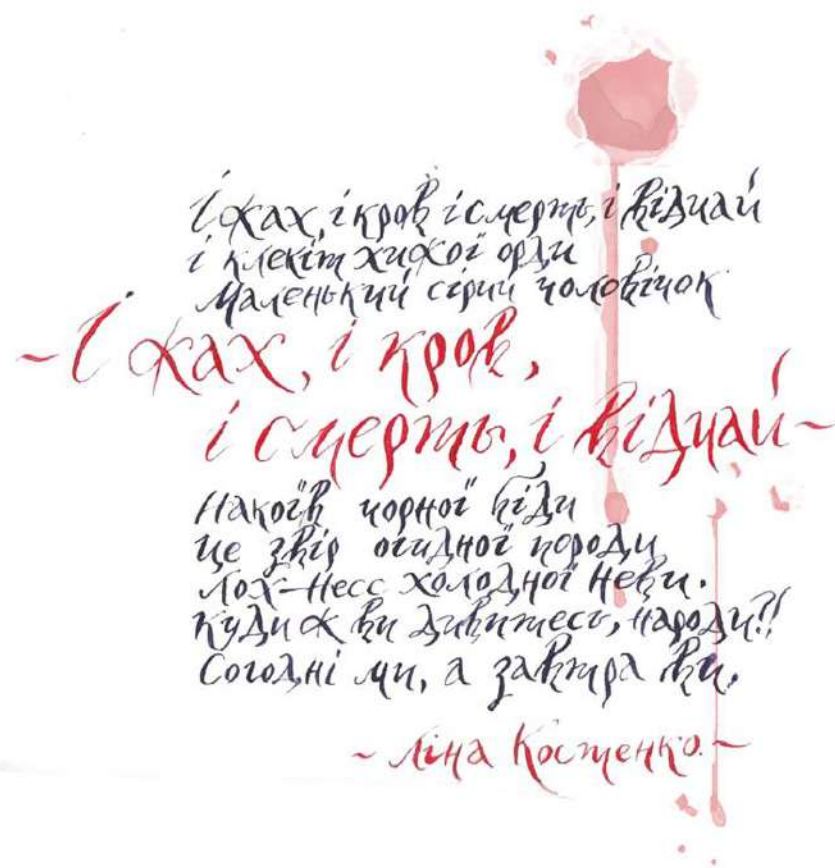 І жах, і кров і смерть, і відчай
і клекіт хижої орди
Маленький сірий чоловічок
~І жах, і кров,
і смерть, і відчай~
Накоїв чорної біди
це звір огидної породи
Лох-Несс холодної Неви.
Куди ж ви дивитесь, народи?!
Сьогодні ми, а завтра ви.
~ Ліна Костенко. ~